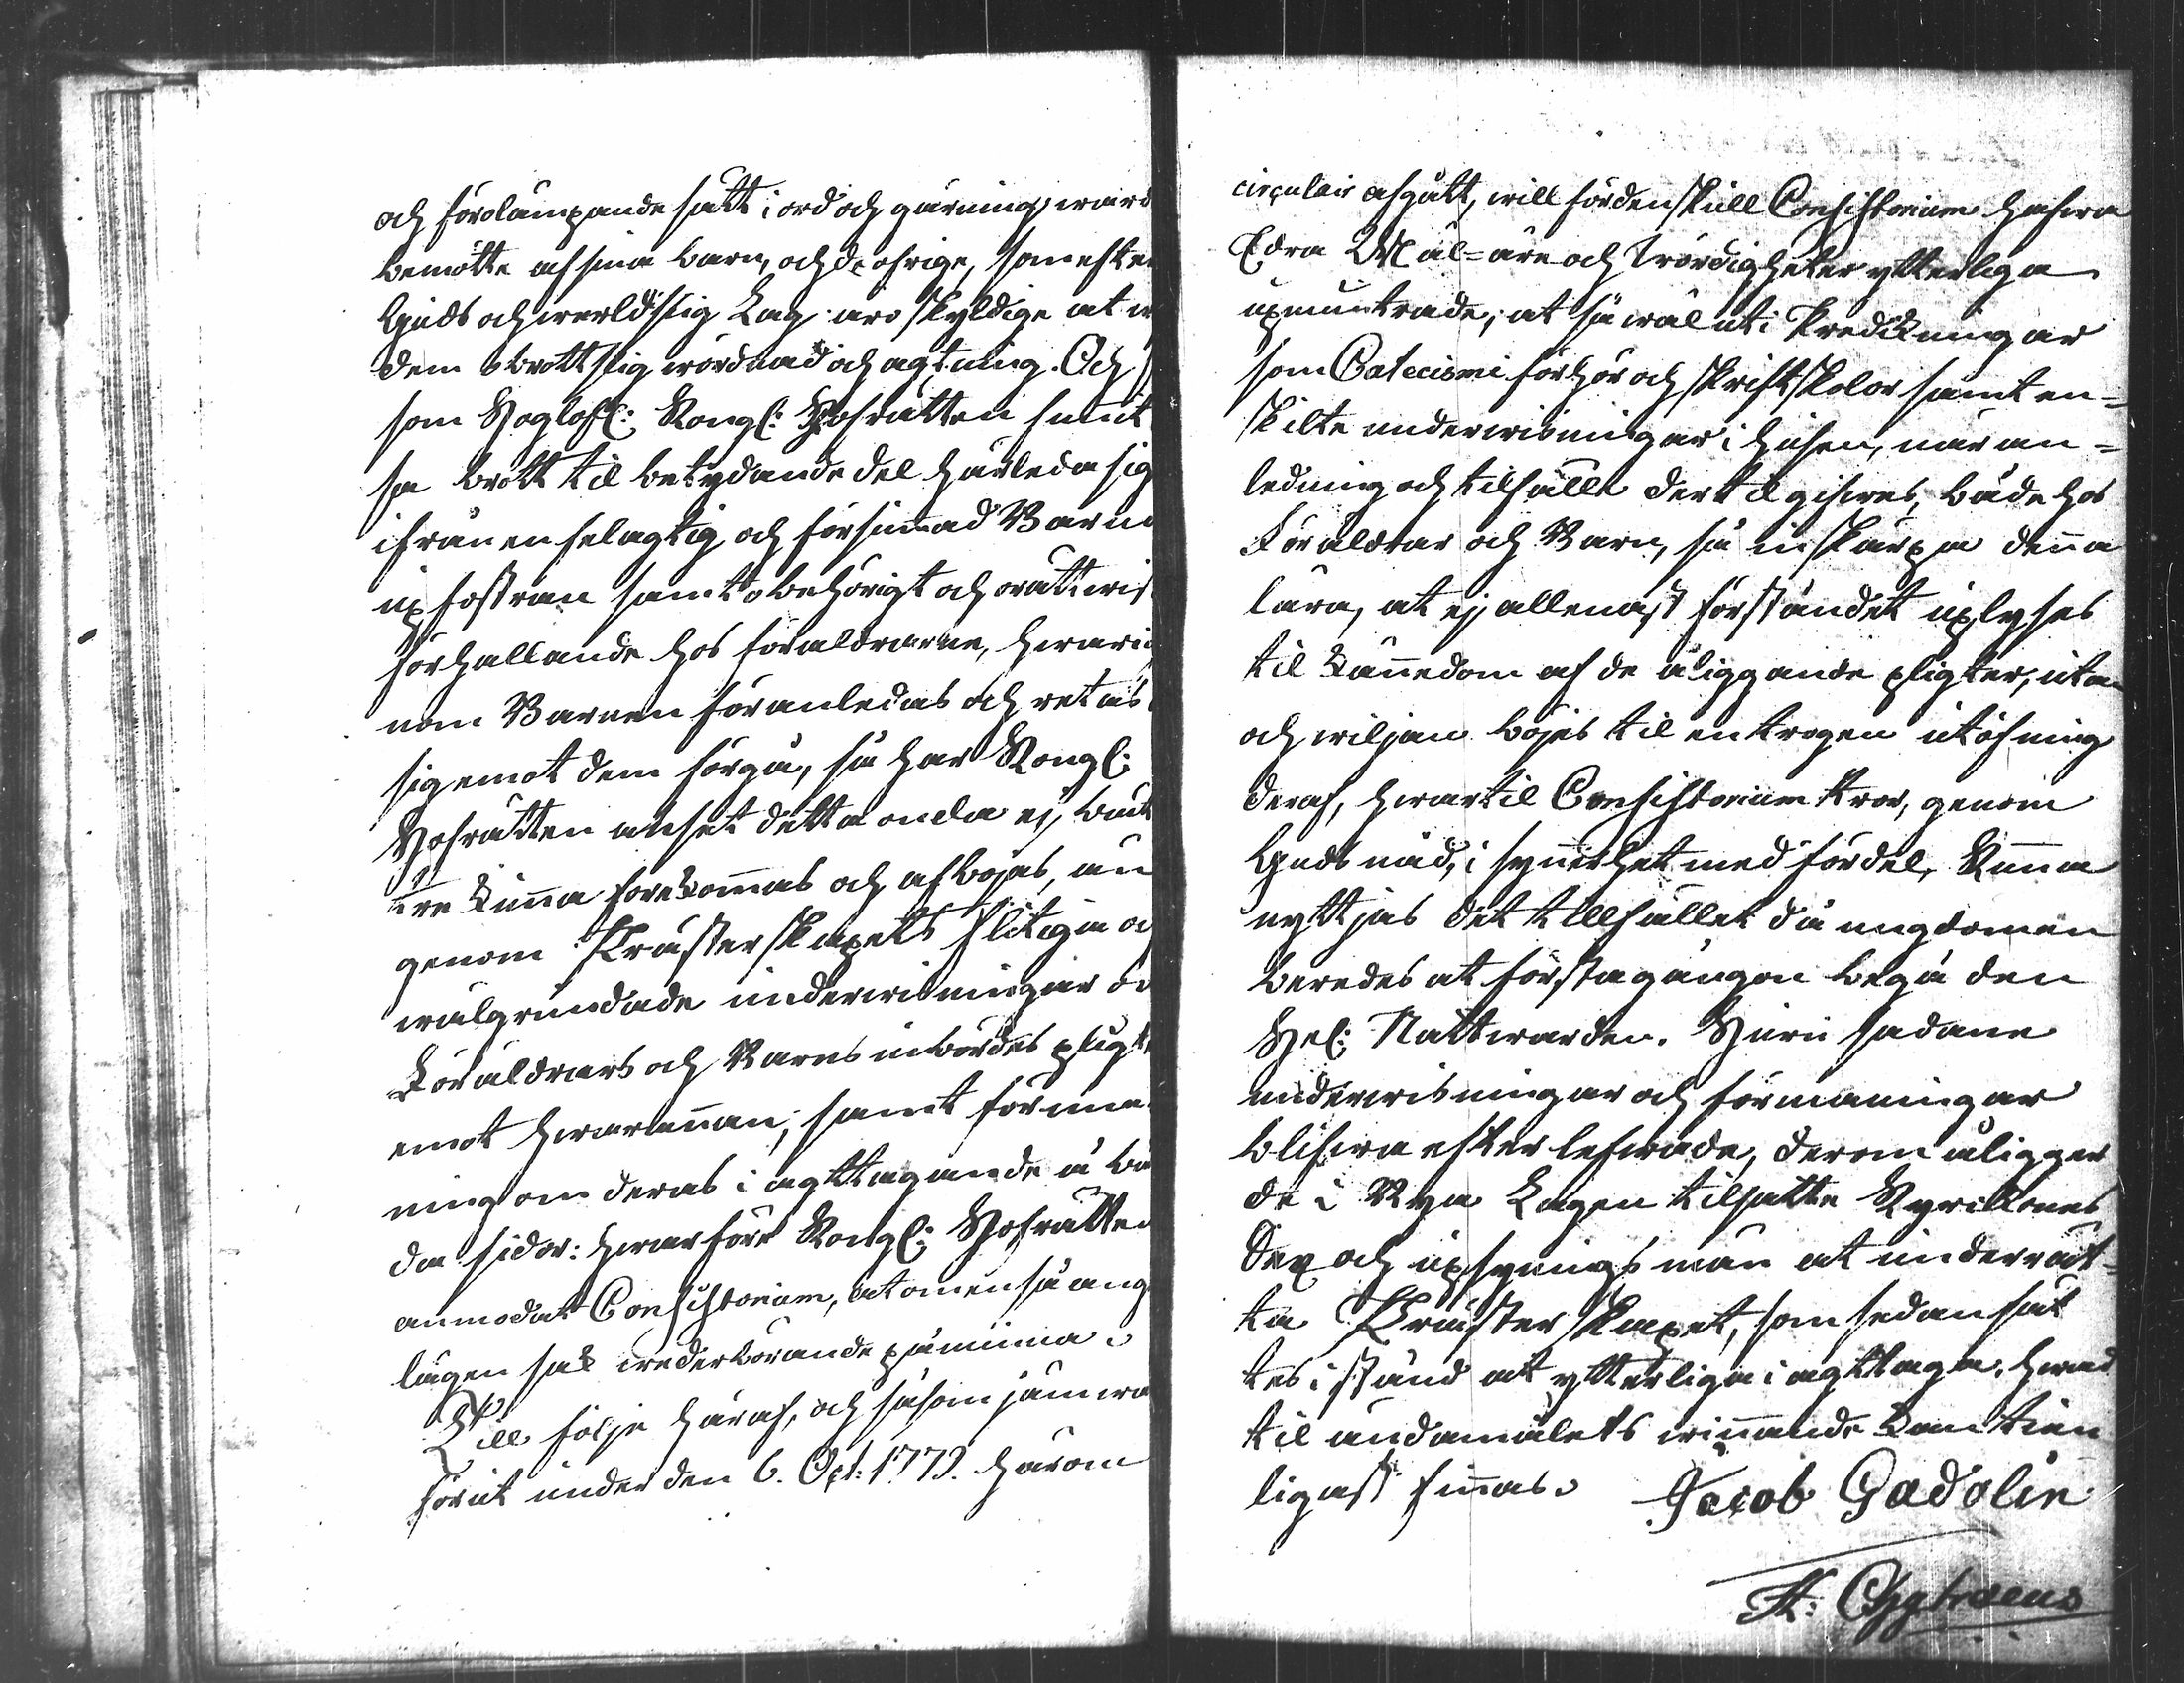 och förolämpande sätt i ord och gärning ward
bemötte af sina barn, och de öfrige, som efter
Guds och werldslig Lag äro skyldige at w
dem obrottslig wördnad och agtning. Och
som Höglofl: Kongl: Hofrätten funnit
sa brott til betydande del härleda sig
ifrån en felagtig och försummad Barna
upfostran samt obehörigt och orättwist
förhållande hos föräldrarne, hwarig
nom Barnen föranledas och retas
sig emot dem förgå, så har Kongl:
Hofrätten ansett detta onda ej bätt
re kunna förekommas och afböjas, än
genom Prästerskapets flitiga oc
wälgrundade underwisningar om
Föräldrars och Barns inbördes pligt
emot hwarannan, samt förma
ning om deras i agttagande å bå
da sidor: hwarföre Kongl: Hofrätten
anmodat Consistorium, at om en så ang
lägen sak wederbörande påminna.
Till följe häraf, och såsom jämwä
förut under den 6. Oct: 1773. härom
circulair afgått, will fördenskull Consistorium hafwa
Edra Wäl-äre och Wördigheter ytterliga
upmuntrade, at så wäl uti Predikningar
som Catecismi förhör och Skriftskolor samt en-
skilte underwisningar i husen, när an-
ledning och tilfälle dertil gifwes, både hos
Föräldrar och Barn, så inskärpa denna
lära, at ej allenast förståndet uplyses
til kännedom af de åliggande pligter, utan
och wiljan böjes til en trogen utöfning
deraf, hwartil Consistorium tror, genom
Guds nåd, i synnerhet med fördel, kunna
nyttjas det tillfället då ungdomen
beredes at första gången begå den
Hel: Nattwarden. Huru sådane
underwisningar och förmaningar
blifwa efterlefwade, derom åligger
de i Nya Lagen tilsatte Kyrkiones
Sex och upsynings män at underrät-
ta Prästerskapet, som sedan sät
tes i stånd at ytterliga i agttaga, hwad
til ändamålets winnande kan tien
ligast finnas. Jacob Gadolin